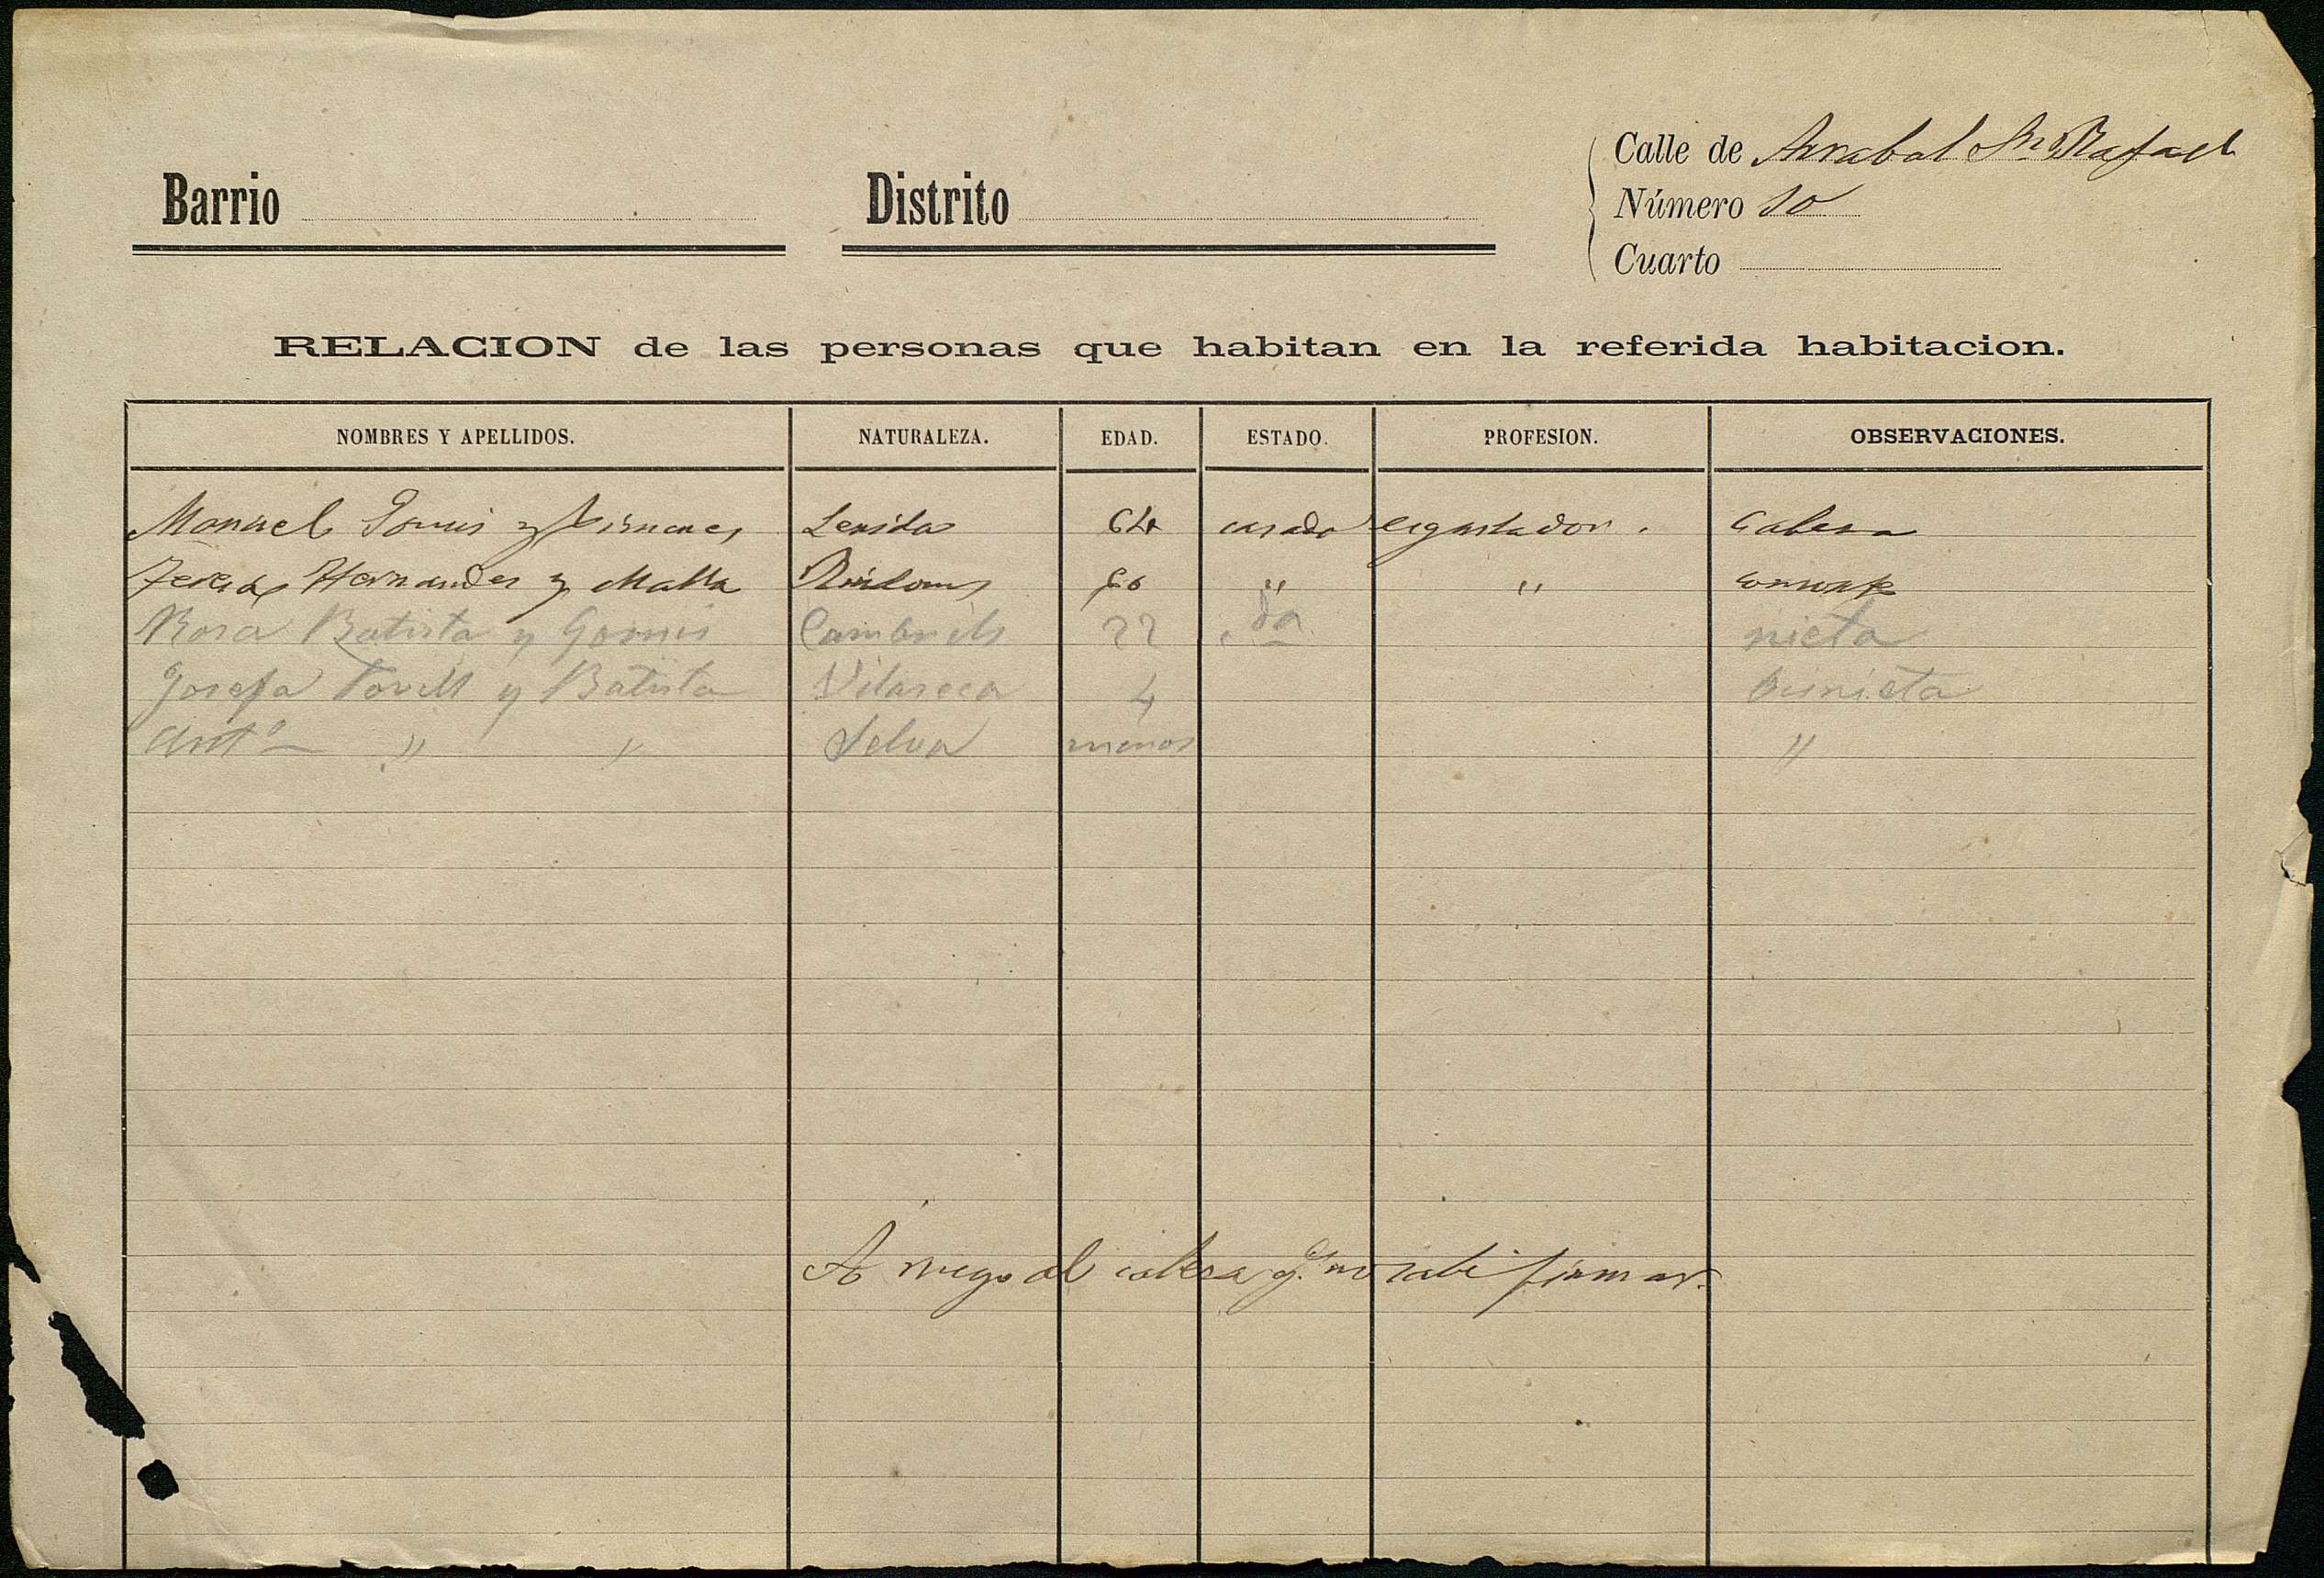 Calle de Arrabal Sn Rafael
Barrio Distrito Número 10
Cuarto
RELACION de las personas que habitan en la referida habitacion.
NOMBRES Y APELLIDOS. NATURALEZA. EDAD. ESTADO. PROFESION. OBSERVACIONES.
Manuel Gomis y Lerida 64 casado Cabesa
Teresa Hernandes y Malla Riudoms " " consorte
Rosa Batista y Gomis Cambrils 22 da nieta
Josefa Tovell y Batista Vilaseca 4 bisnieta
Anto " " Selva menos "
A ruego del cabesa q. no sabe firmar.